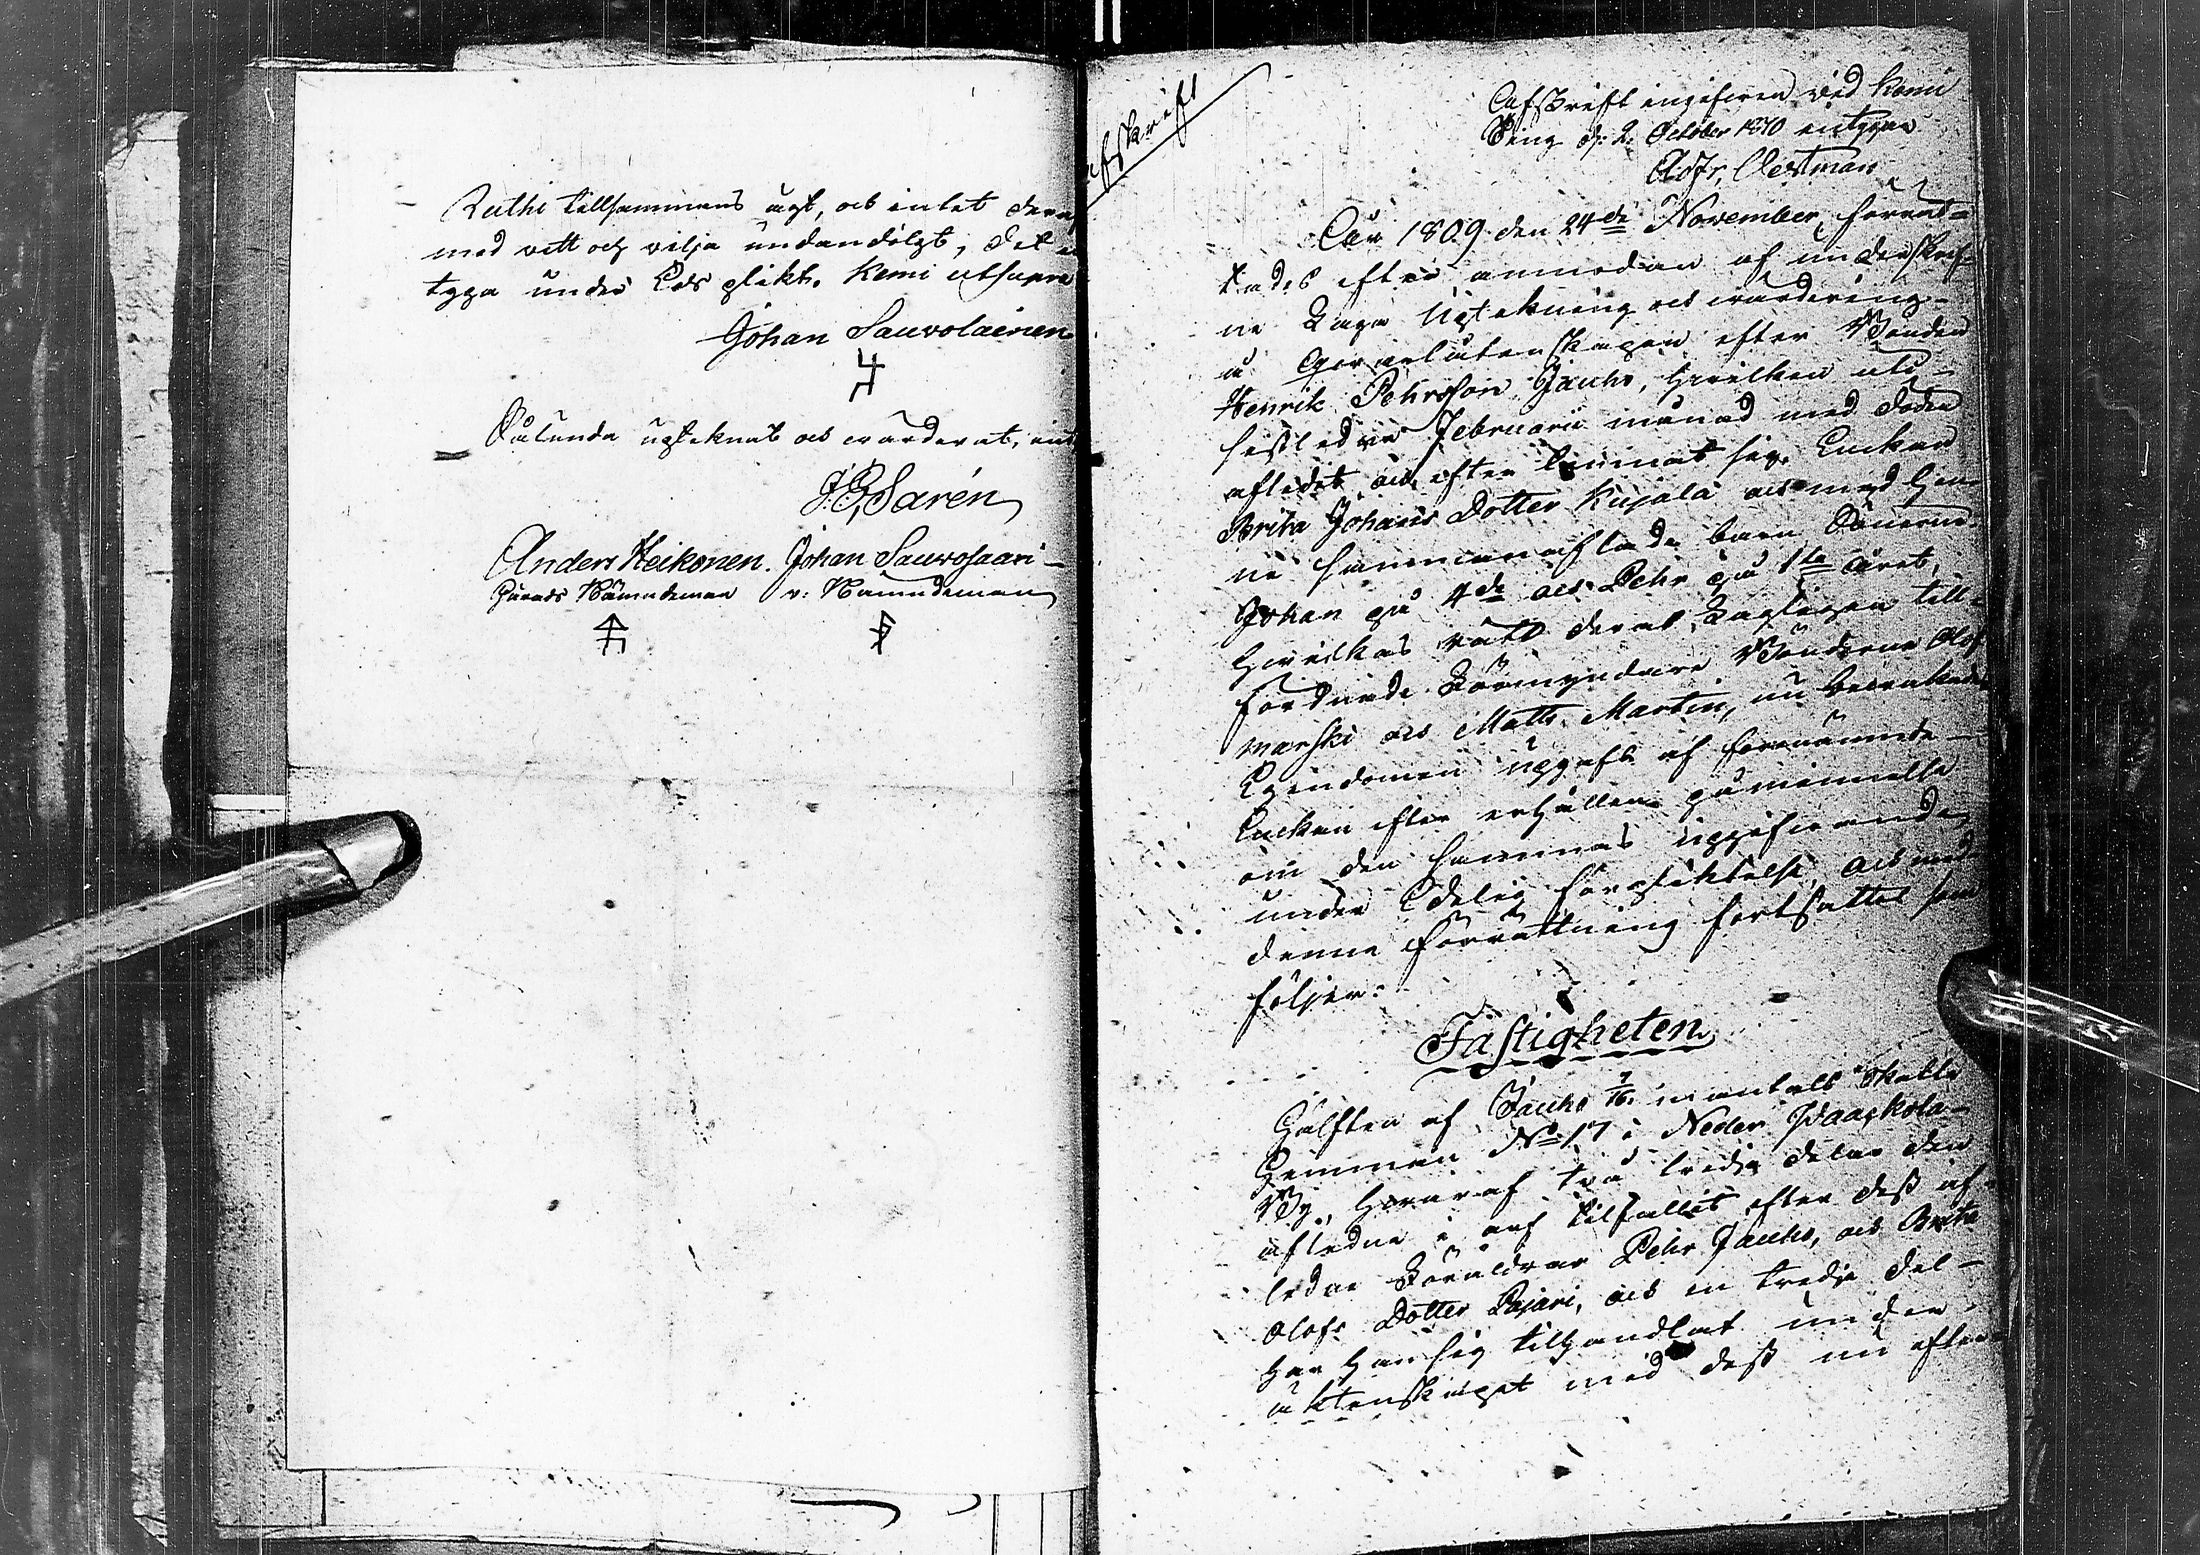 Ruthi tillsammans ägt, och intet deraf
med vett och vilja undandölgt, det
tyga under Eds plikt. Kemi utsupra
Johan Sauvolainen
Sålunda upteknat och värderat,
J: G: Sarén
Anders Heikonen. Johan Sauvosaari
Härads Nämndeman v: Nämndeman
Afskrift
Afskrift ingifven vid Kemi
Ting d: 2 October 1810 intygar
Adfr, Oestman
År 1809 den 24de November, förrät-
tades efter anmodan af underskref-
ne Laga Upteckning och värdering
å qvarlåtenskapen efter Bonden
Henrik Pehrsson Jauho, hvilken uti
sistledne Februarii månad med döden
afledit, och efter lemnat sig Enkan
Brita Johans Dotter Kujala och med hen-
ne sammanaflade barn Sönerne
Johan på 4de och Pehr på 1sta året,
hvilkas rätt deras Lagligen till-
förordnade Förmyndare Bönderne Olof
marski och Matts Martin, nu bevakade
Egendomen uppgafs af förenämnde
Enkan efter erhållen påminnelse
om den sammas uppgifvande
under Edelig förpliktelse, och med
denne förrättning fortsattes som
följer:
Fastigheten
Hälften af Jauho 7/16 mantals Skatte
Hemman No 17 i Neder Paakkola
By, hvaraf två tredje delar den
aflidne i arf tilfallit efter dess af-
ledne Föräldrar Pehr Jauho, och Brita
Olofs Dotter Pajari, och en tredje del
har han sig tilhandlat under
äktenskapet med dess nu efter-